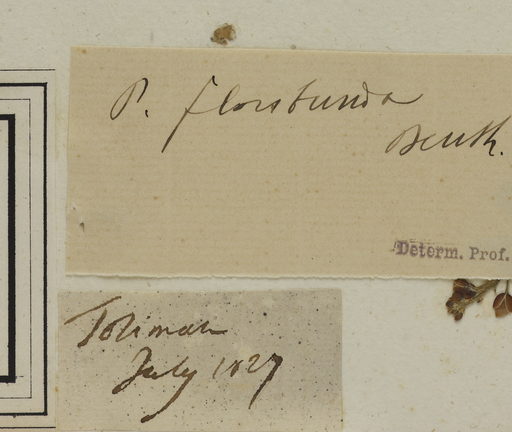 P. floribunda
Benth.
Determ. Prof.
Toliman
July 1827